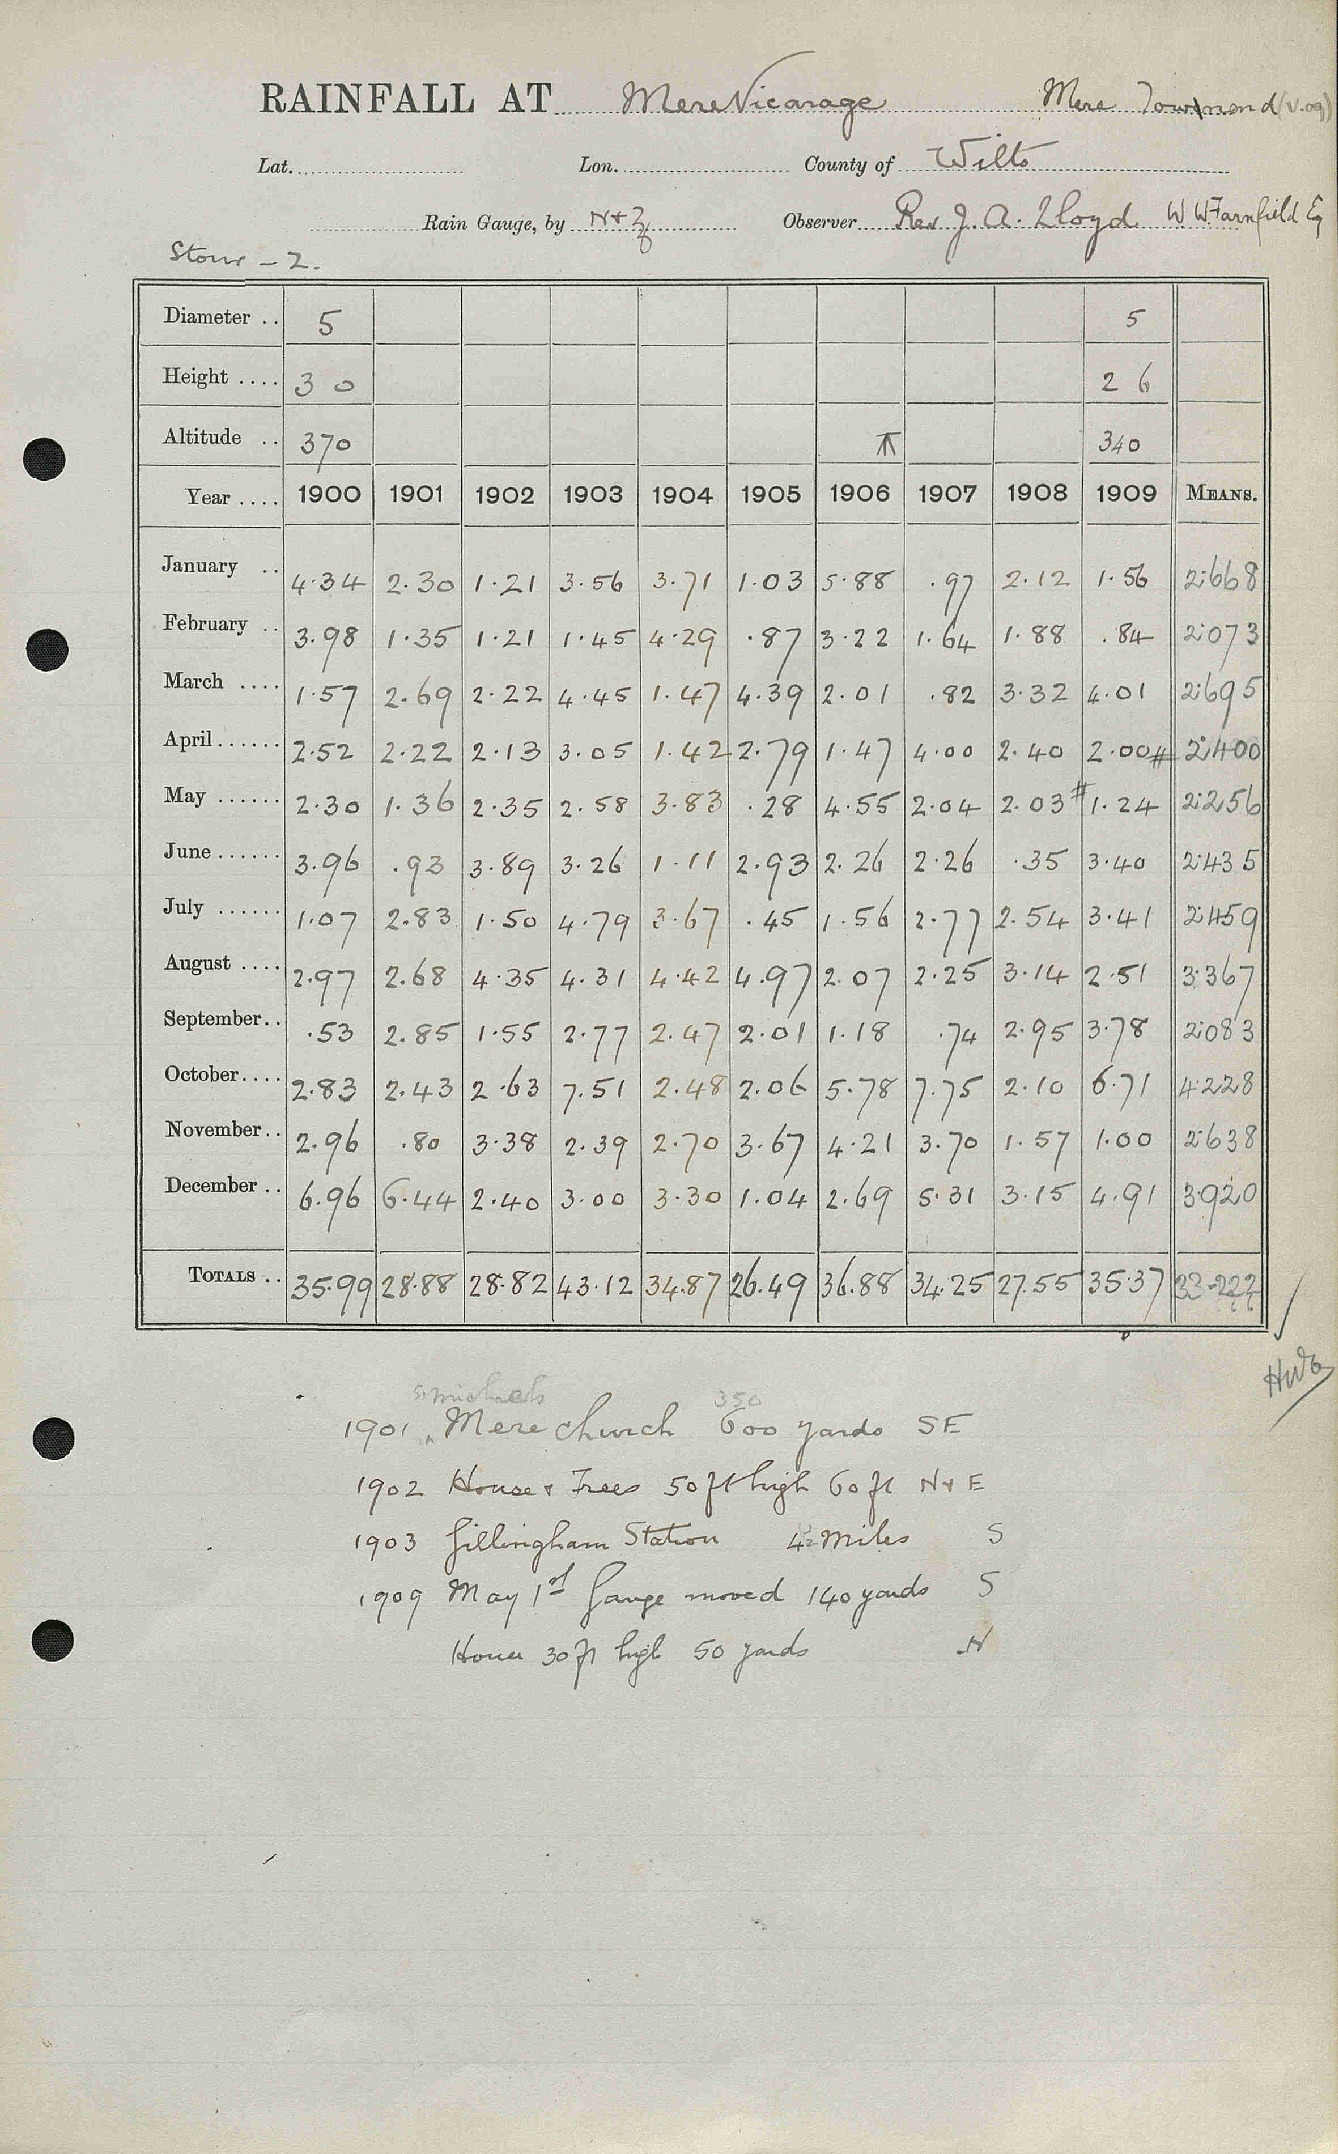 RAINFALL AT Mere Vicarage Mere Townend (V.09)
Lat. Lon. County of Wilts
Rain Gauge, by N+Z Observer Rev J. A. Lloyd W W Farnfield Eq
Stour - 2.
Diameter .. 5 5
Height .... 3 0 2 6
Altitude .. 370 340
Year .... 1900 1901 1902 1903 1904 1905 1906 1907 1908 1909 MEANS.
January .. 4.34 2.30 1.21 3.56 3.71 1.03 5.88 .97 2.12 1.56 2.668
February .. 3.98 1.35 1.21 1.45 4.29 .87 3.22 1.64 1.88 .84 2.073
March .... 1.57 2.69 2.22 4.45 1.47 4.39 2.01 .82 3.32 4.01 2.695
April ...... 2.52 2.22 2.13 3.05 1.42 2.79 1.47 4.00 2.40 2.00# 2.400
May ...... 2.30 1.36 2.35 2.58 3.83 .28 4.55 2.04 2.03 #1.24 2.256
June ...... 3.96 .93 3.89 3.26 1.11 2.93 2.26 2.26 .35 3.40 2.435
July ...... 1.07 2.83 1.50 4.79 3.67 .45 1.56 2.77 2.54 3.41 2.459
August .... 2.97 2.68 4.35 4.31 4.42 4.97 2.07 2.25 3.14 2.51 3.367
September .. .53 2.85 1.55 2.77 2.47 2.01 1.18 .74 2.95 3.78 2.083
October .... 2.83 2.43 2.63 7.51 2.48 2.06 5.78 7.75 2.10 6.71 4.228
November .. 2.96 .80 3.38 2.39 2.70 3.67 4.21 3.70 1.57 1.00 2.638
December .. 6.96 6.44 2.40 3.00 3.30 1.04 2.69 5.31 3.15 4.91 3.920
TOTALS .. 35.99 28.88 28.82 43.12 34.87 26.49 36.88 34.25 27.55 35.37 33.222
St michaels 350
1901 Mere church 600 yards SE
1902 House & Trees 50 ft high 60 ft N & E
1903 Gillingham Station 4½ miles S
1909 May 1st Gauge moved 140 yards S
House 30 ft high 50 yards N